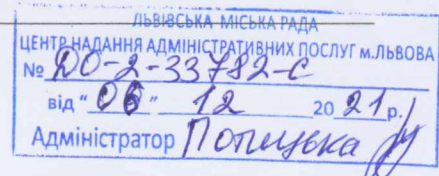 ЛЬВІВСЬКА МІСЬКА РАДА
ЦЕНТР НАДАННЯ АДМІНІСТРАТИВНИХ ПОСЛУГ м.ЛЬВОВА
№ ДО-2-33782-С
від “ 06 ” 12 20 21 р.
Адміністратор